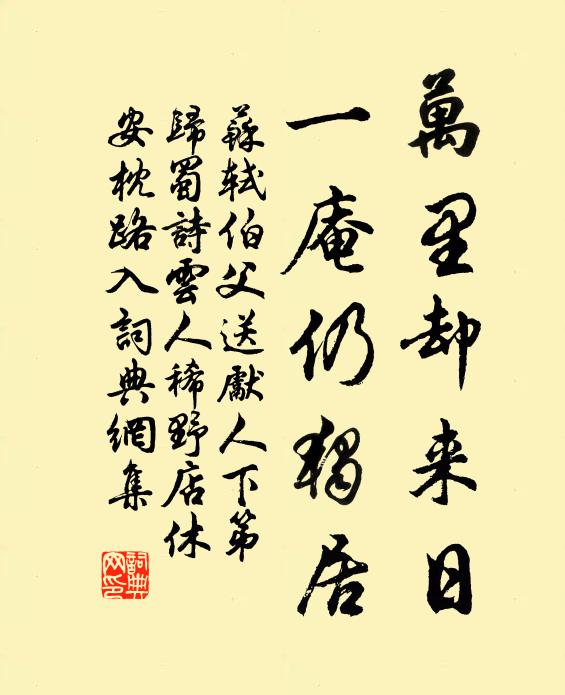 萬里却来日
一庵仍獨居
蘇軾伯父送獻人下第
歸蜀詩雲人稀野店休
安枕路入詞典網集
詞典
网印